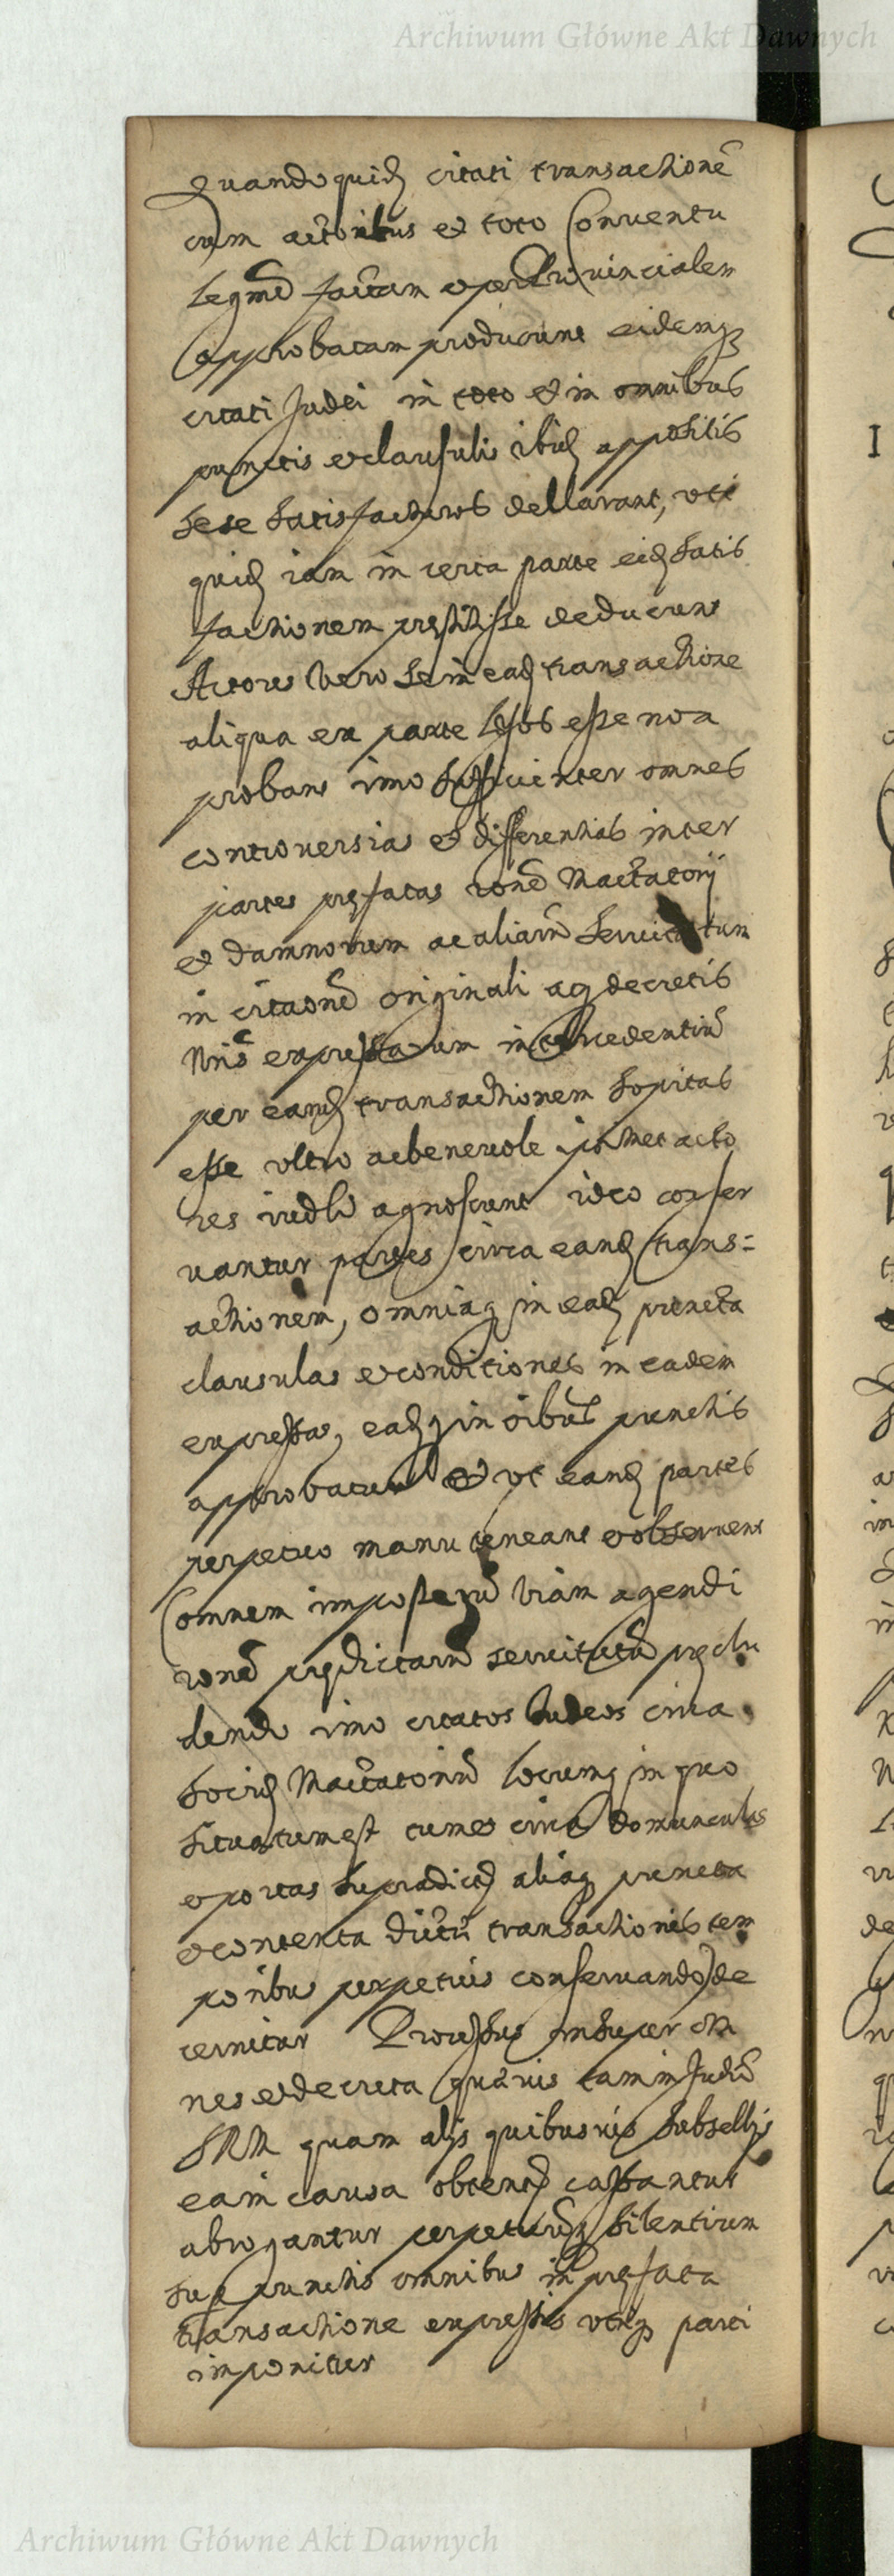 Archiwum Główne Akt Dawnych
Quandoquidē citati transactionē
cum actoribus et toto Conventu
legmē factam et per Provincialem
approbatam producunt eidemqз
citati Judei in toto et in omnibus
punctis et clausulis ibidē appositis
sese satisfacturos declarant, uti
quidē iam in certa parte eidē satis
factionem pręstitisse deducunt
Actores vero se in eadē transactione
aliqua ex parte lęsos esse non
probant imo sufficienter omnes
controversias et differentias inter
partes pręfatas rōne Mactatorij
et damnorum ac aliarū servitutum
in citaōne originali acq decretis
expressarum intercedentiū
per eandē transactionem sopitas
esse ultro ac benevole ipsimet acto
res iudlr agnoscunt ideo conser
vantur partes circa eandē trans:
actionem, omniaq in eadē puncta
clausulas et conditiones in eadem
expressas, eadq in oibus punctis
approbatur et ut eandē partes
perpetuo manu teneant et observent
omnem imposterū viam agendi
rōne prędictarū servitutū pręclu
dendo imo citatos Judeos circa
Mactatoriū locumq in quo
situatum est tum et circa domunculas
et portas supradictē aliaq puncta
et contenta dictę transactionis tem
poribus perpetuis conservando de
cernitur Processus insuper om
nes et decreta quęvis tam in Judō
SRM quam alijs quibusvis subsellijs
ea in causa obtentē cassantur
abrogantur perpetuumq silentium
sup punctis omnibus in pręfata
transactione expressis utriqз parti
imponitur
I
Archiwum Główne Akt Dawnych